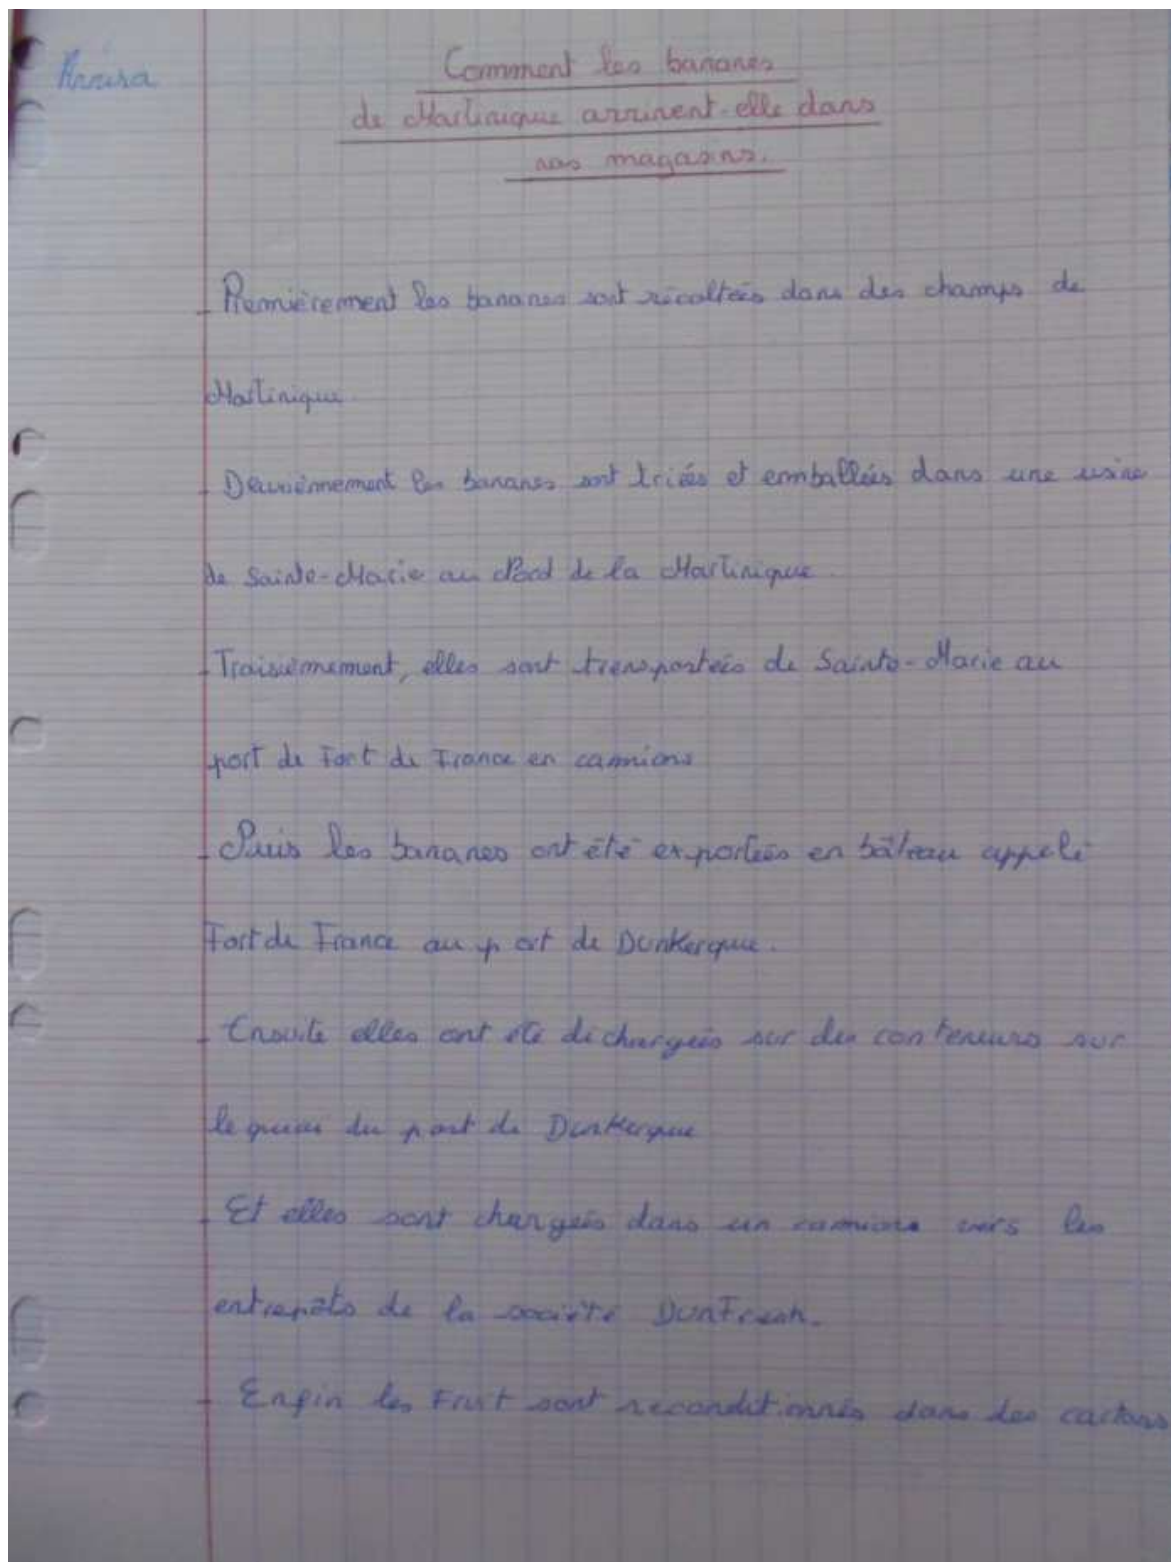 Comment les bananes
de Martinique arrivent-elle dans
nos magasins.
- Premièrement les bananes sont récoltées dans des champs de
Martinique.
- Deuxièmement les bananes sont triées et emballées dans une usine
de Sainte-Marie au Nord de la Martinique.
- Troisièmement, elles sont transportées de Sainte-Marie au
port de Fort de France en camions
- Puis les bananes ont été exportées en bâteau appelé
Fort de France au port de Dunkerque.
- Ensuite elles ont été dechargées sur des conteneurs sur
le quai du port de Dunkerque
- Et elles sont chargées dans un camions vers les
entrepôts de la société DunFresh.
- Enfin les Fruit sont reconditionnés dans des cartons